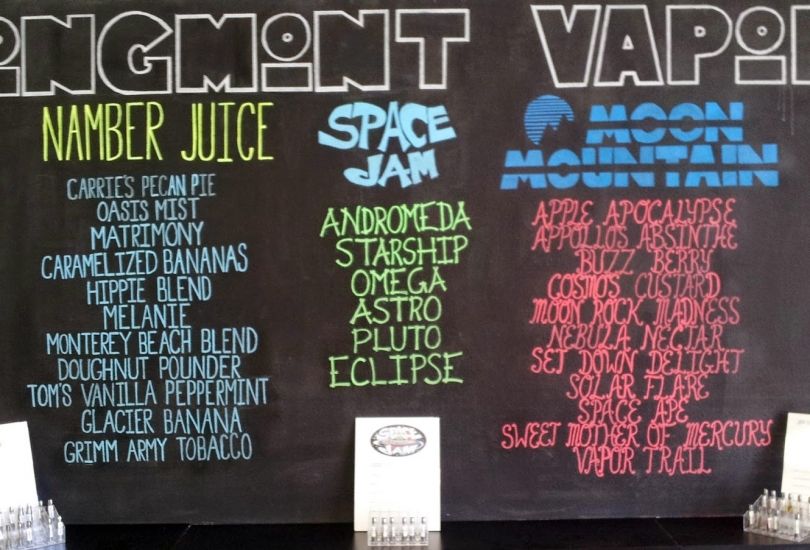 ONGMONT VAPO
NAMBER JUICE
CARRIE'S PECAN PIE
OASIS MIST
MATRIMONY
CARAMELIZED BANANAS
HIPPIE BLEND
MELANIE
MONTEREY BEACH BLEND
DOUGHNUT POUNDER
TOM'S VANILLA PEPPERMINT
GLACIER BANANA
GRIMM ARMY TOBACCO
SPACE
JAM
ANDROMEDA
STARSHIP
OMEGA
ASTRO
PLUTO
ECLIPSE
MOON
MOUNTAIN
APPLE APOCALYPSE
APPOLLOS ABSINTHE
BUZZ BERRY
COSMOS CUSTARD
MOON ROCK MADNESS
NEBULA NECTAR
SET DOWN DELIGHT
SOLAR FLARE
SPACE APE
SWEET MOTHER OF MERCURY
VAPOR TRAIL
SPACE
JAM